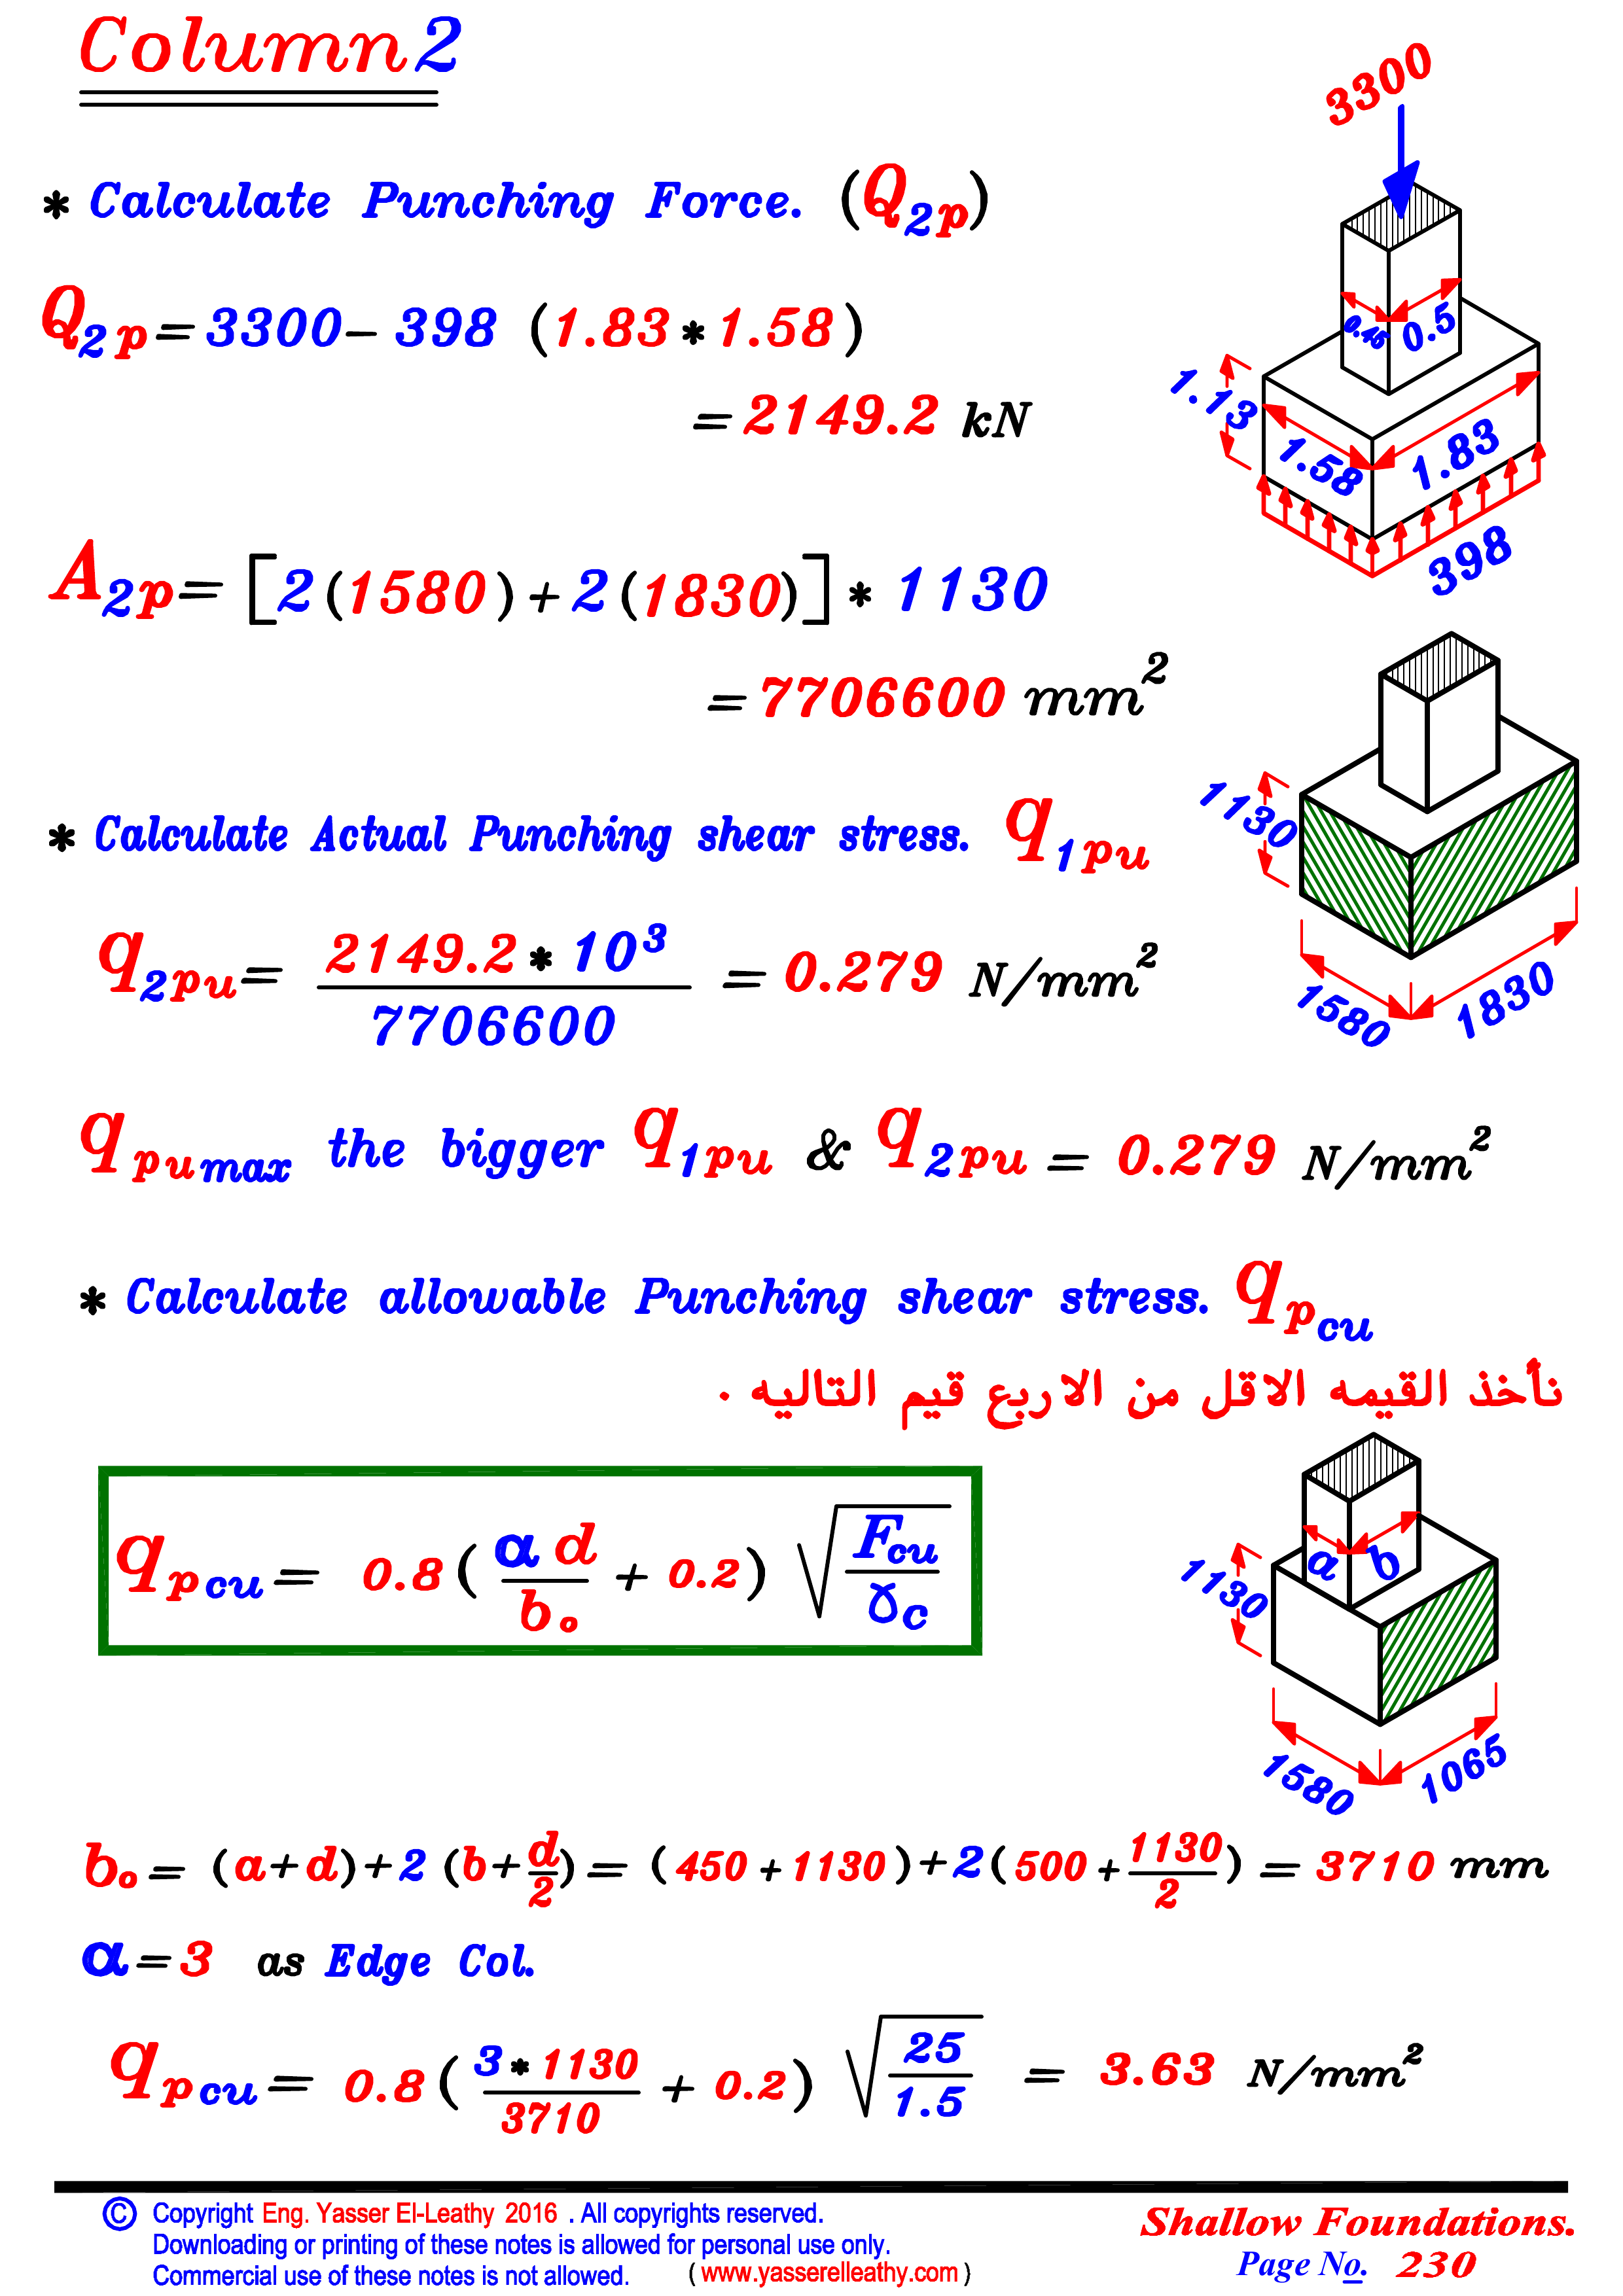 Column 2
* Calculate Punching Force. (Q2p)
3300
Q2p = 3300 – 398 (1.83 * 1.58)
= 2149.2 kN
0.45 0.5
1.13
1.58 1.83
398
A2p = [2(1580) + 2(1830)] * 1130
= 7706600 mm²
* Calculate Actual Punching shear stress. q1pu
1130
1580 1830
q2pu = 2149.2 * 10³ / 7706600 = 0.279 N/mm²
qpu max the bigger q1pu & q2pu = 0.279 N/mm²
* Calculate allowable Punching shear stress. qpcu
نأخذ القيمه الاقل من الاربع قيم التاليه .
qpcu = 0.8 (α d / bo + 0.2) √(Fcu / γc)
a b
1130
1580 1065
bo = (a+d)+2 (b+d/2) = (450 + 1130)+2(500 + 1130/2) = 3710 mm
α = 3 as Edge Col.
qpcu = 0.8 (3 * 1130 / 3710 + 0.2) √(25 / 1.5) = 3.63 N/mm²
© Copyright Eng. Yasser El-Leathy 2016 . All copyrights reserved.
Downloading or printing of these notes is allowed for personal use only.
Commercial use of these notes is not allowed. ( www.yasserelleathy.com )
Shallow Foundations.
Page No. 230